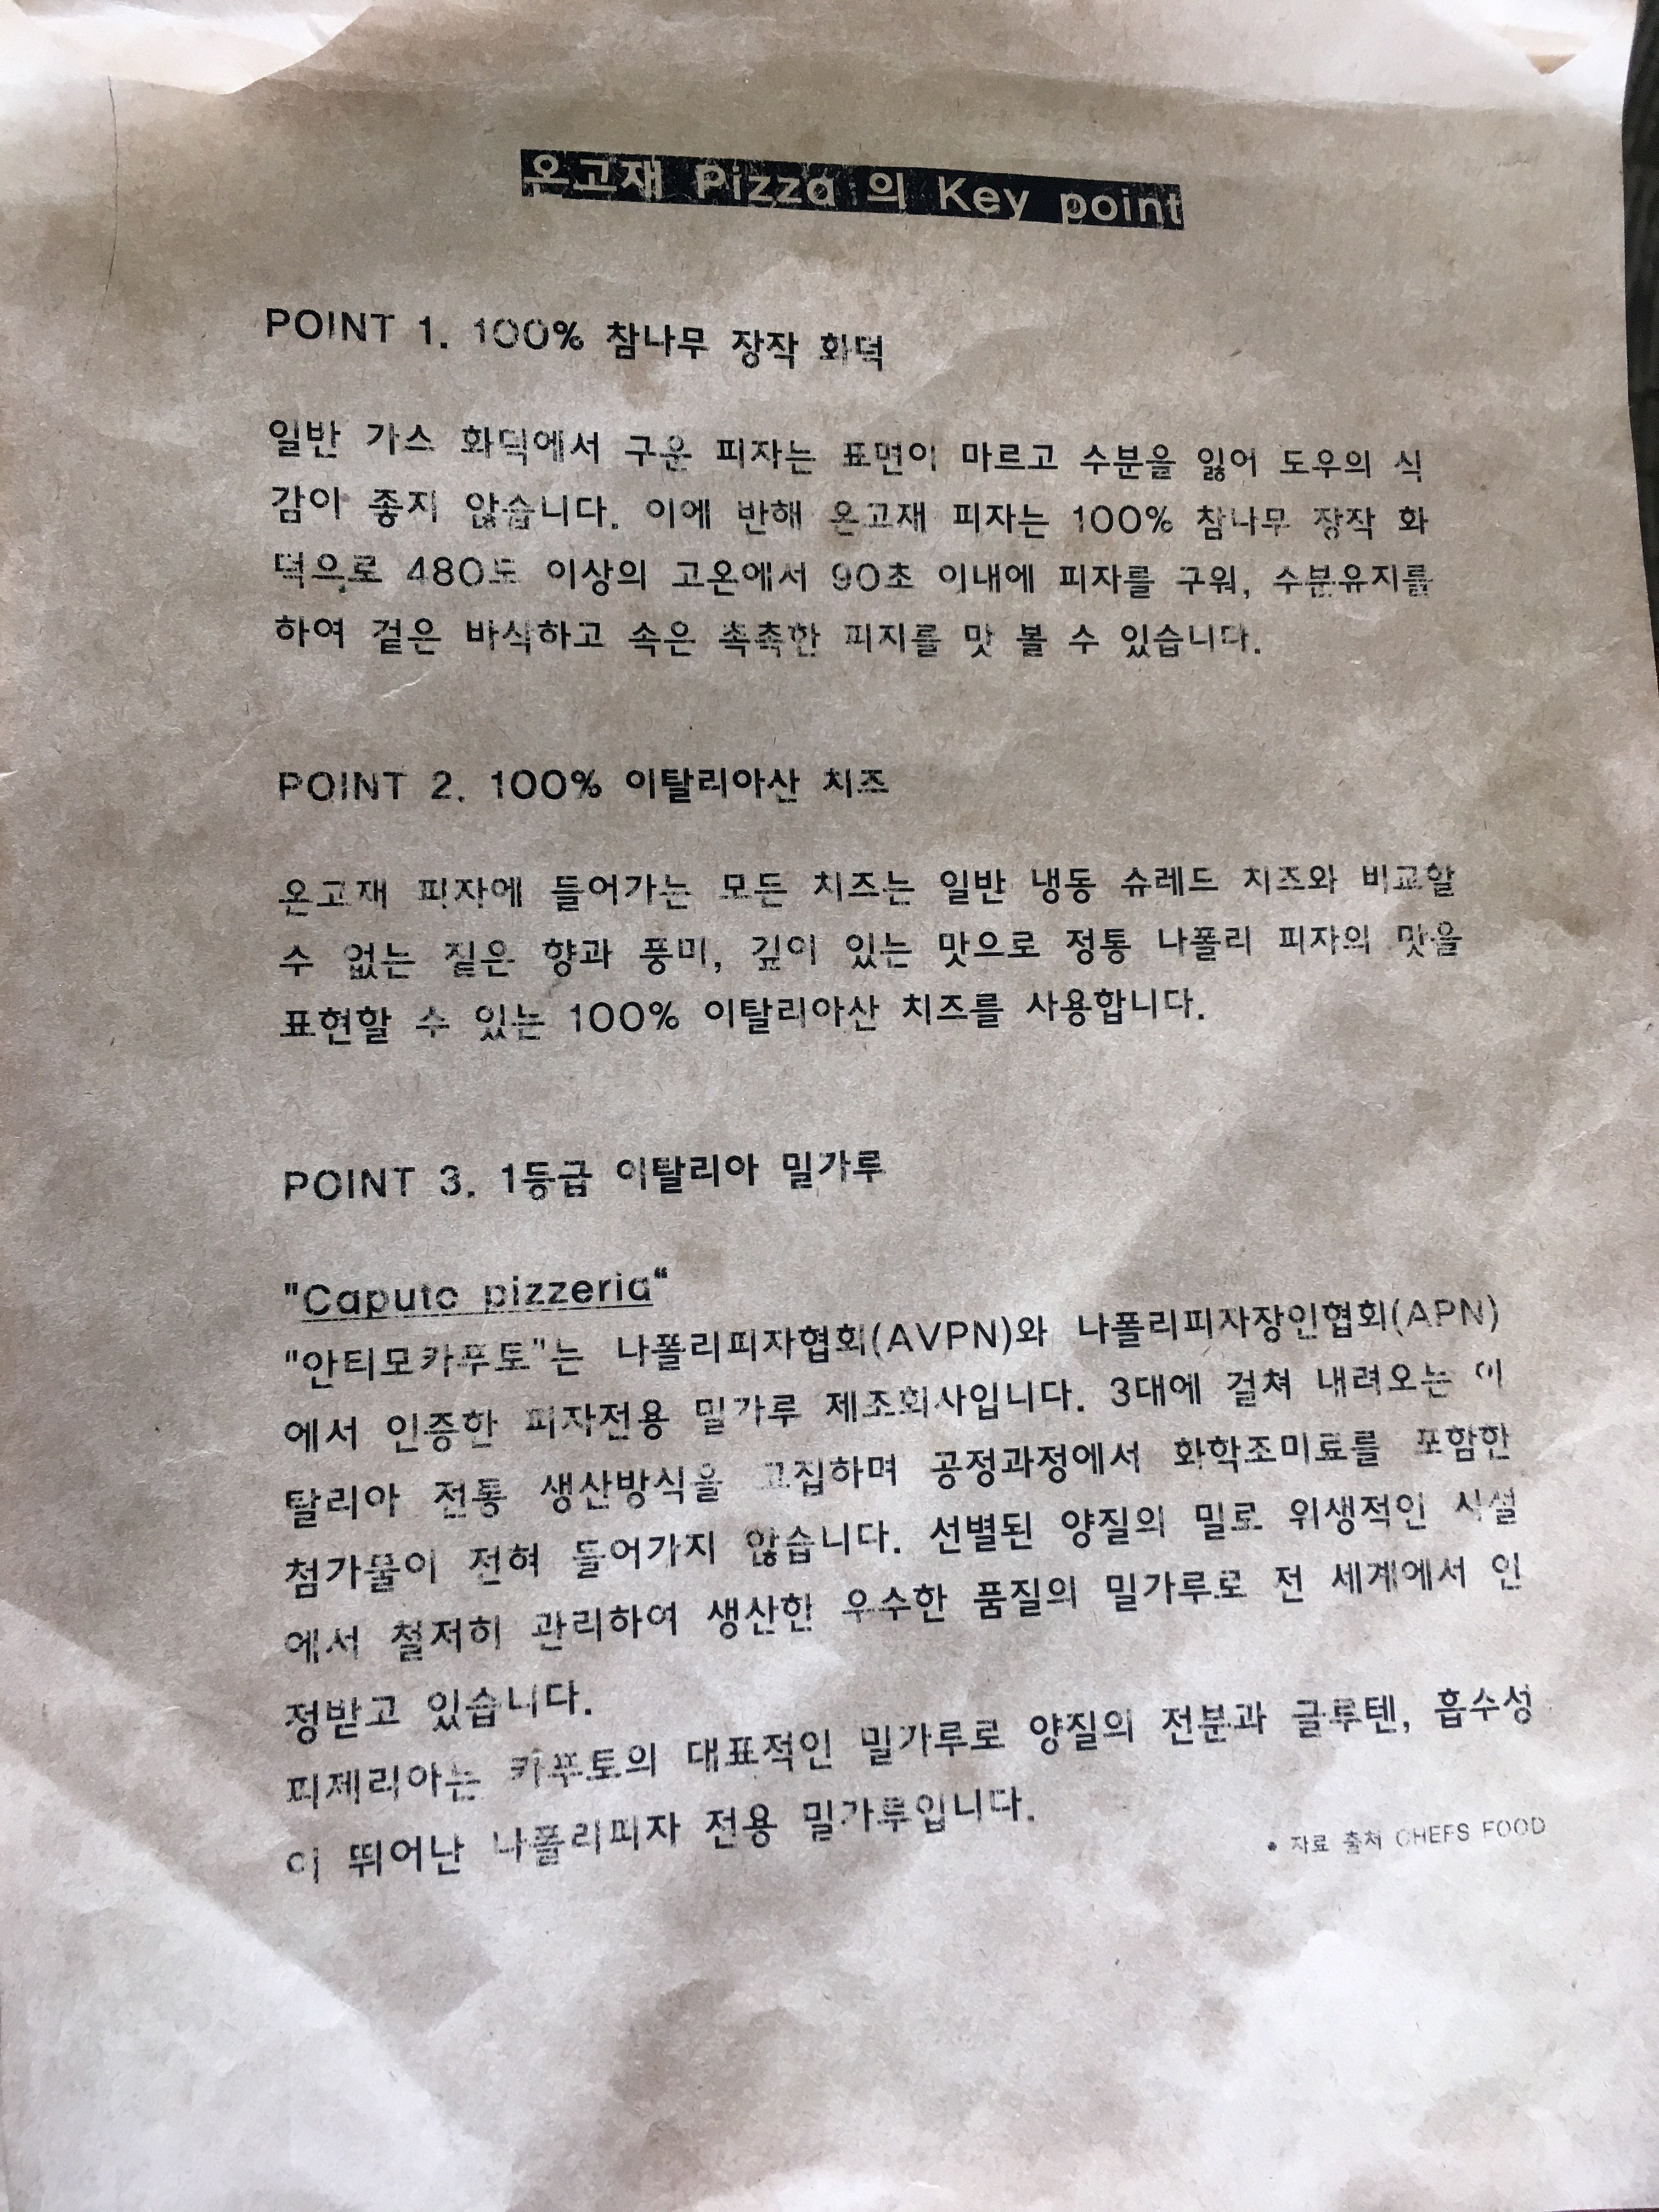 온고재 Pizza 의 Key point
POINT 1. 100% 참나무 장작 화덕
일반 가스 화덕에서 구운 피자는 표면이 마르고 수분을 잃어 도우의 식
감이 좋지 않습니다. 이에 반해 온고재 피자는 100% 참나무 장작 화
덕으로 480도 이상의 고온에서 90초 이내에 피자를 구워, 수분유지를
하여 겉은 바삭하고 속은 촉촉한 피자를 맛 볼 수 있습니다.
POINT 2. 100% 이탈리아산 치즈
온고재 피자에 들어가는 모든 치즈는 일반 냉동 슈레드 치즈와 비교할
수 없는 짙은 향과 풍미, 깊이 있는 맛으로 정통 나폴리 피자의 맛을
표현할 수 있는 100% 이탈리아산 치즈를 사용합니다.
POINT 3. 1등급 이탈리아 밀가루
"Caputo pizzeria"
"안티모카푸토"는 나폴리피자협회(AVPN)와 나폴리피자장인협회(APN)
에서 인증한 피자전용 밀가루 제조회사입니다. 3대에 걸쳐 내려오는 이
탈리아 전통 생산방식을 고집하며 공정과정에서 화학조미료를 포함한
첨가물이 전혀 들어가지 않습니다. 선별된 양질의 밀로 위생적인 시설
에서 철저히 관리하여 생산한 우수한 품질의 밀가루로 전 세계에서 인
정받고 있습니다.
피제리아는 카푸토의 대표적인 밀가루로 양질의 전분과 글루텐, 흡수성
이 뛰어난 나폴리피자 전용 밀가루입니다.
* 자료 출처 CHEFS FOOD